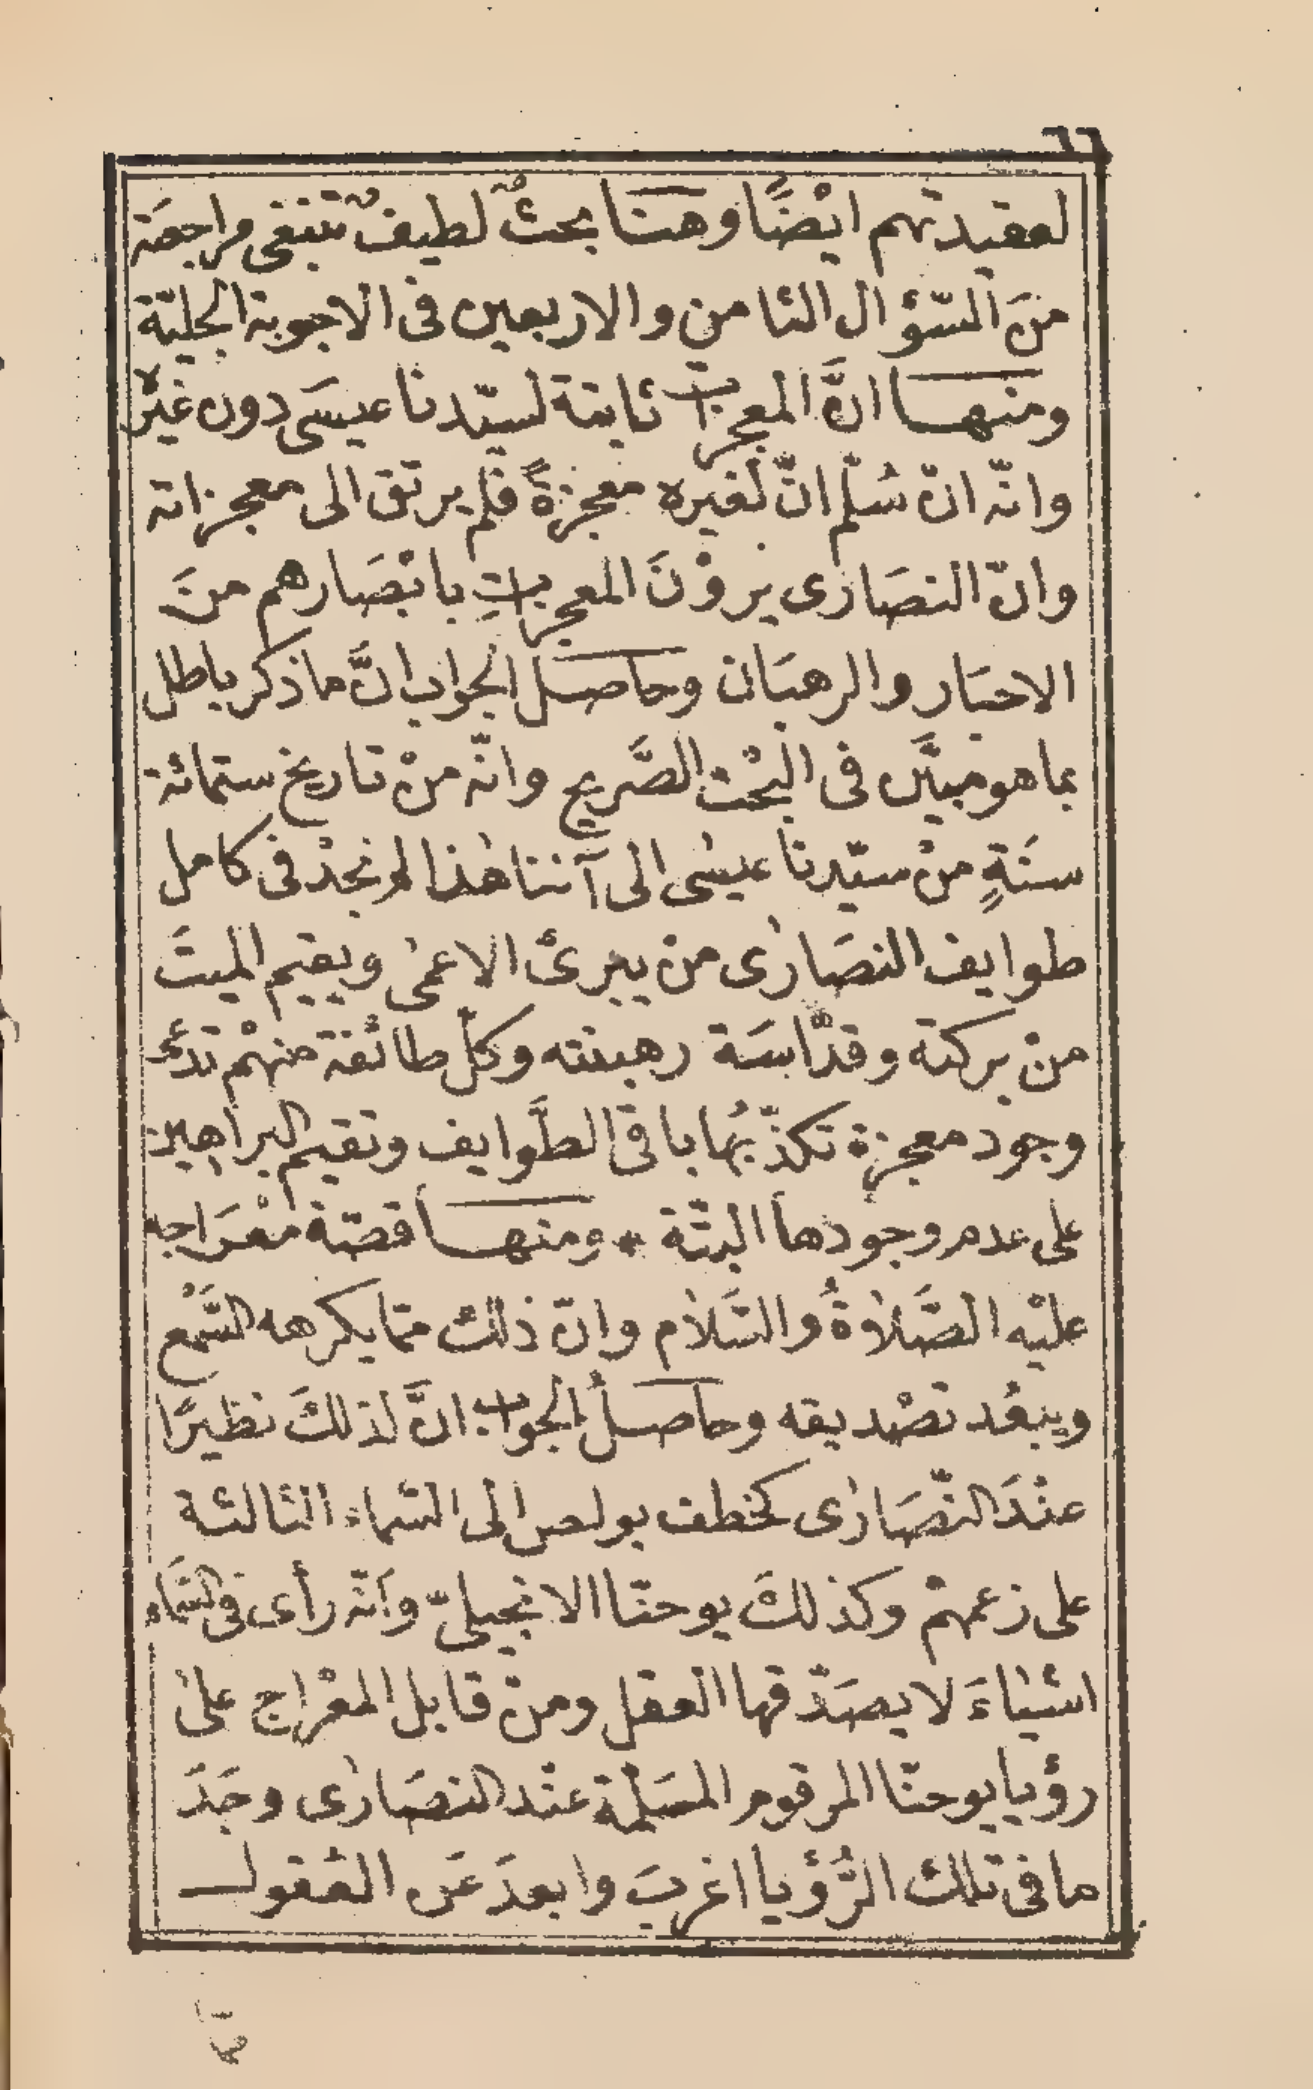 ٦٦
لعقيدتهم ايْضًا وهنا بحثٌ لطيفٌ تنبغى مراجعَته
منَ السّؤال الثامن والاربعين فى الاجوبة الجليّة
ومنهــا انَّ المعجزات ثابتة لسيّدنا عيسَى دون غيْره
وانّه انْ سُلّم انّ لغيره معجزةً فلم يرتق الى معجزاته
وانّ النصَارى يروْنَ المعجزاتِ بابْصَارهم منَ
الاحبَار والرهبَان وحاصـل الجواب انَّ ما ذكر باطل
بما هو مبيَّن فى البحْث الصَّريح وانّه منْ تاريخ ستمائة
سنَةٍ منْ سيّدنا عيسٰى الى آننا هٰذا لم نجدْ فى كامل
طوايف النصَارٰى منْ يبرئ الاعمٰى ويقيم الميتَ
منْ بركته وقدَّاسَة رهبنته وكلّ طائفة منهمْ تدعى
وجود معجزة تكذّبُها باقى الطَّوايف وتقيم البراهين
على عدم وجودها البتّة * ومنهــا قصّة معْرَاجه
عليْه الصَّلاٰوةُ والسَّلاٰم وانّ ذٰلك ممّا يكرهه السَّمْع
ويبعُد تصْديقه وحاصـلُ الجواب انَّ لذلكَ نظيرًا
عنْدَ النّصَارٰى كخطف بولص الى السّماء الثالثة
على زعمهمْ وكذلكَ يوحنّا الانجيلىّ وانّه رأى فى السَّماء
اشيٰاءَ لا يصَدّقها العقل ومنْ قابل المعْراج علىٰ
رؤيا يوحنّا المرقوم المسَلّمة عنْد النصَارٰى وجَدَ
ما فى تلك الرُّؤيا اغربَ وابعدَ عَن العُقول